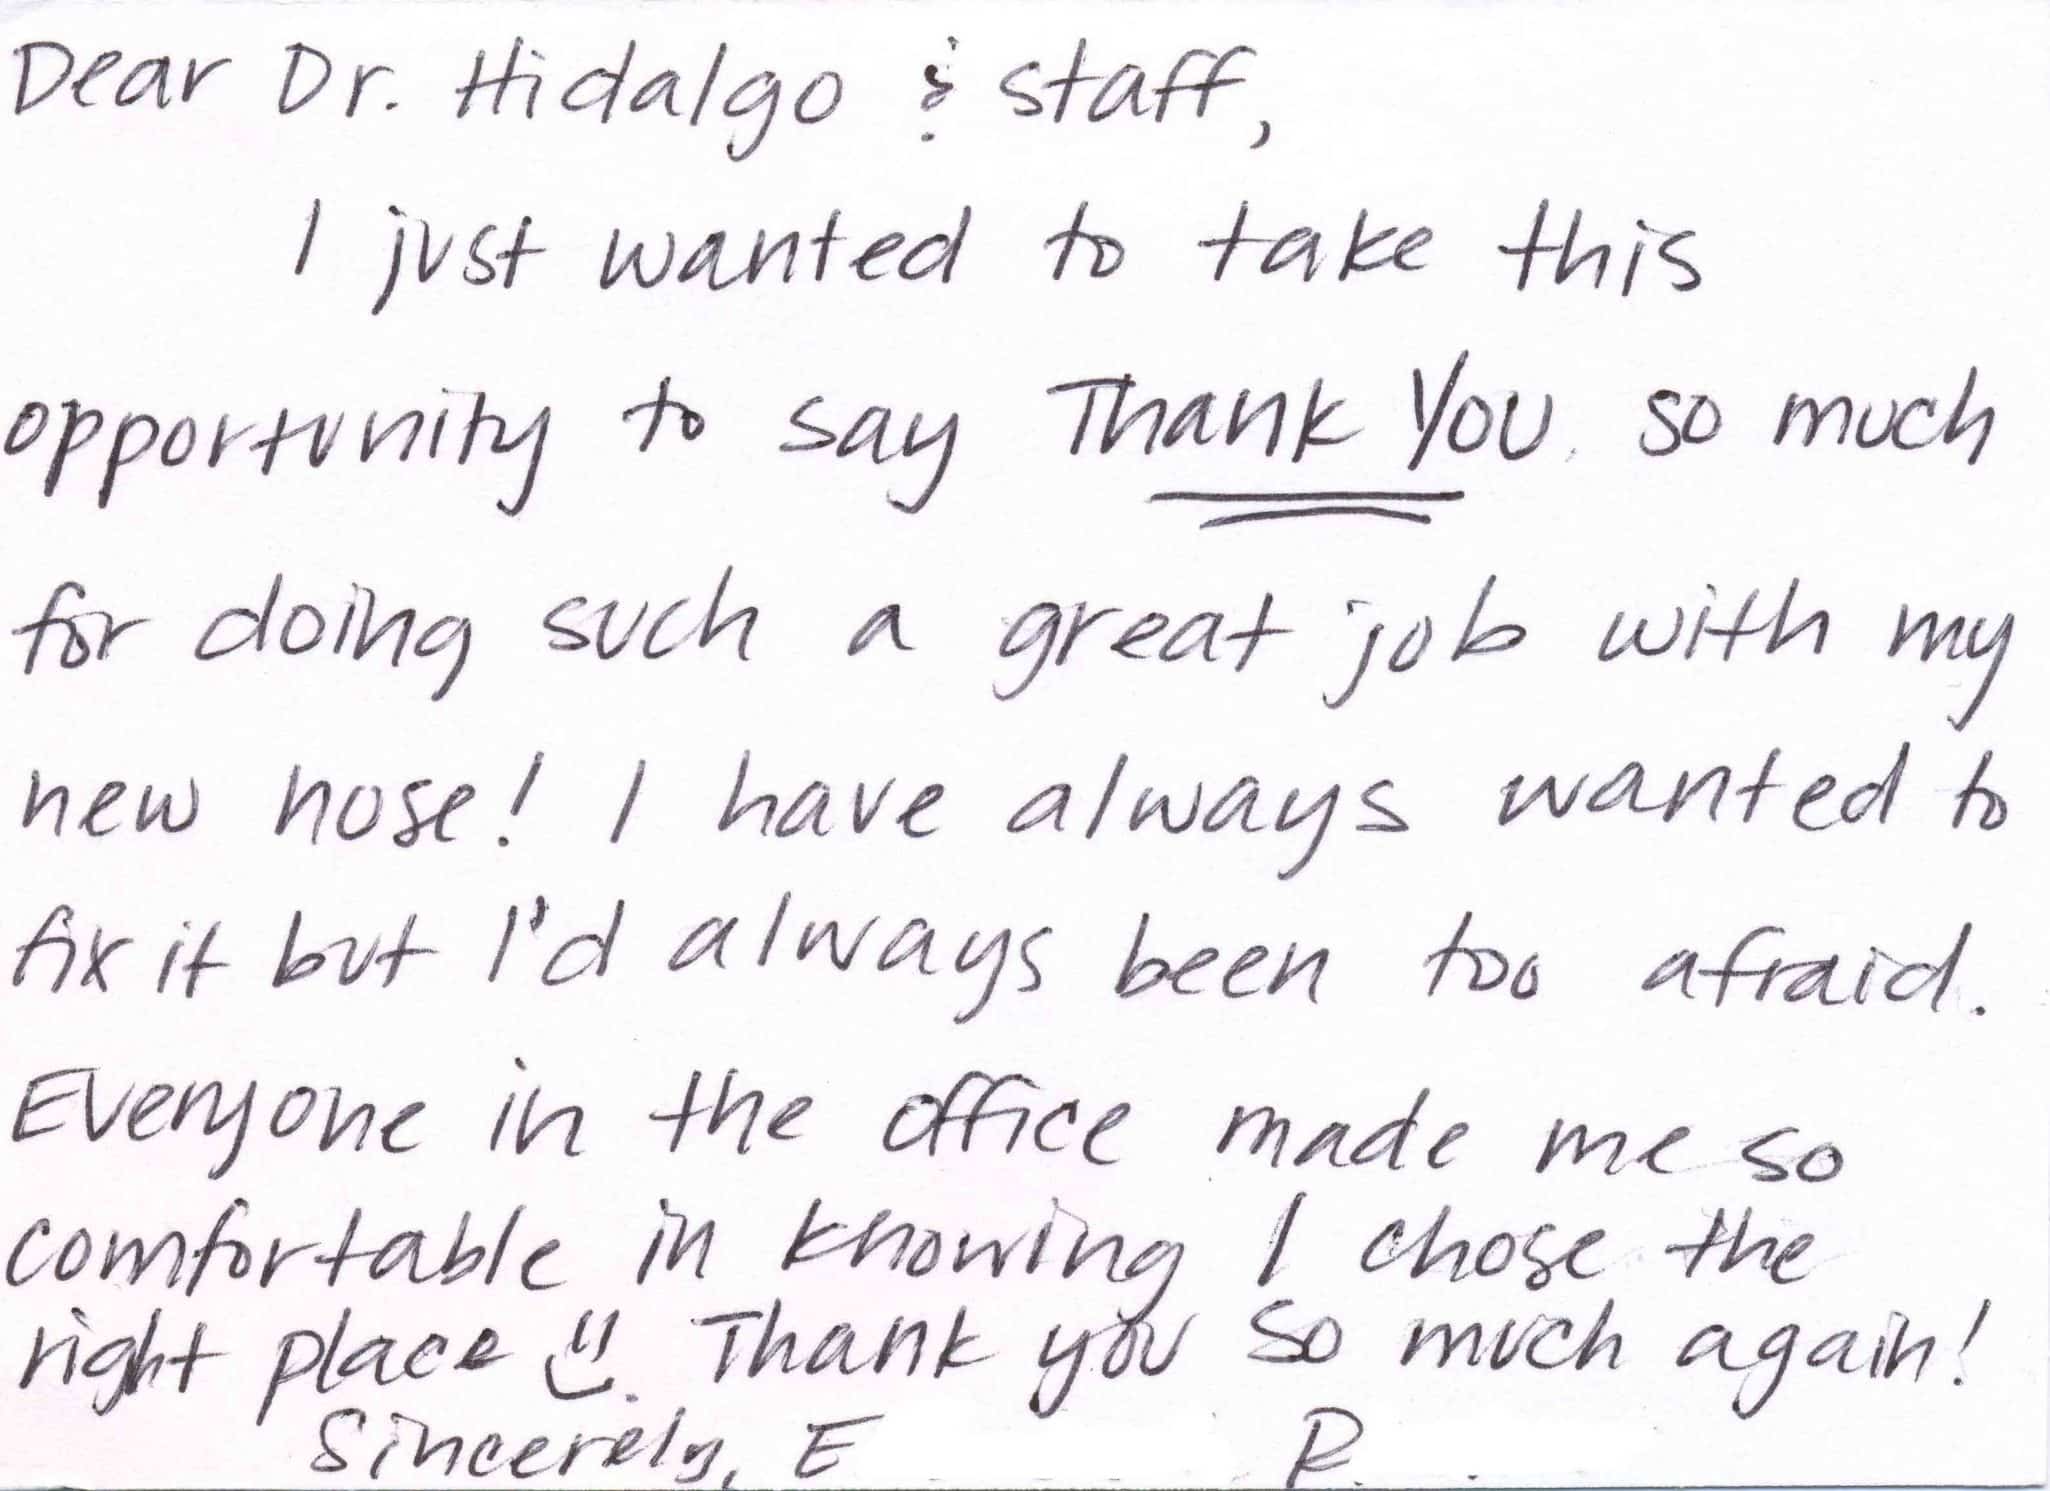 Dear Dr. Hidalgo & staff,
I just wanted to take this
opportunity to say Thank You so much
for doing such a great job with my
new nose! I have always wanted to
fix it but I'd always been too afraid.
Everyone in the office made me so
comfortable in knowing I chose the
right place :). Thank you so much again!
Sincerely, E R.